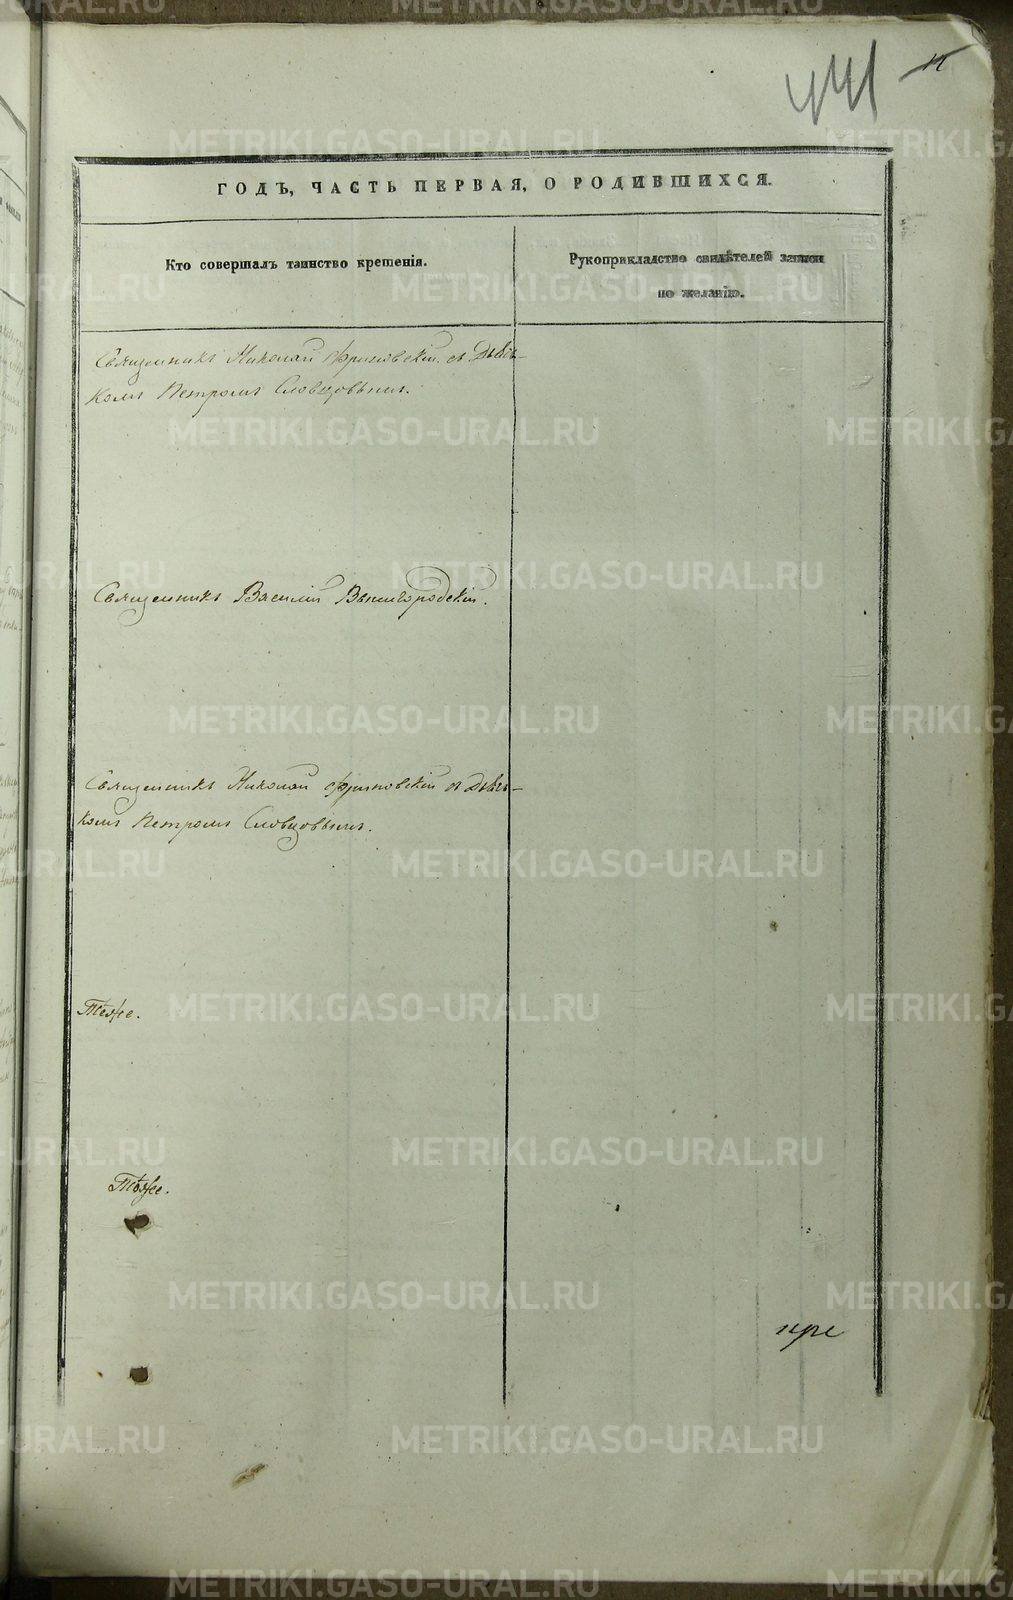 441
ГОДЪ, ЧАСТЬ ПЕРВАЯ, О РОДИВШИХСЯ.
Кто совершалъ таинство крещенія.
Рукоприкладство свидѣтелей записи
по желанію.
Священникъ Николай Фриновскій съ Дьяч-
комъ Петромъ Словцовымъ.
Священникъ Василій Вышгородскій.
Священникъ Николай Фриновскій съ Дьяч-
комъ Петромъ Словцовымъ.
Тѣже.
Тѣже.
METRIKI.GASO-URAL.RU